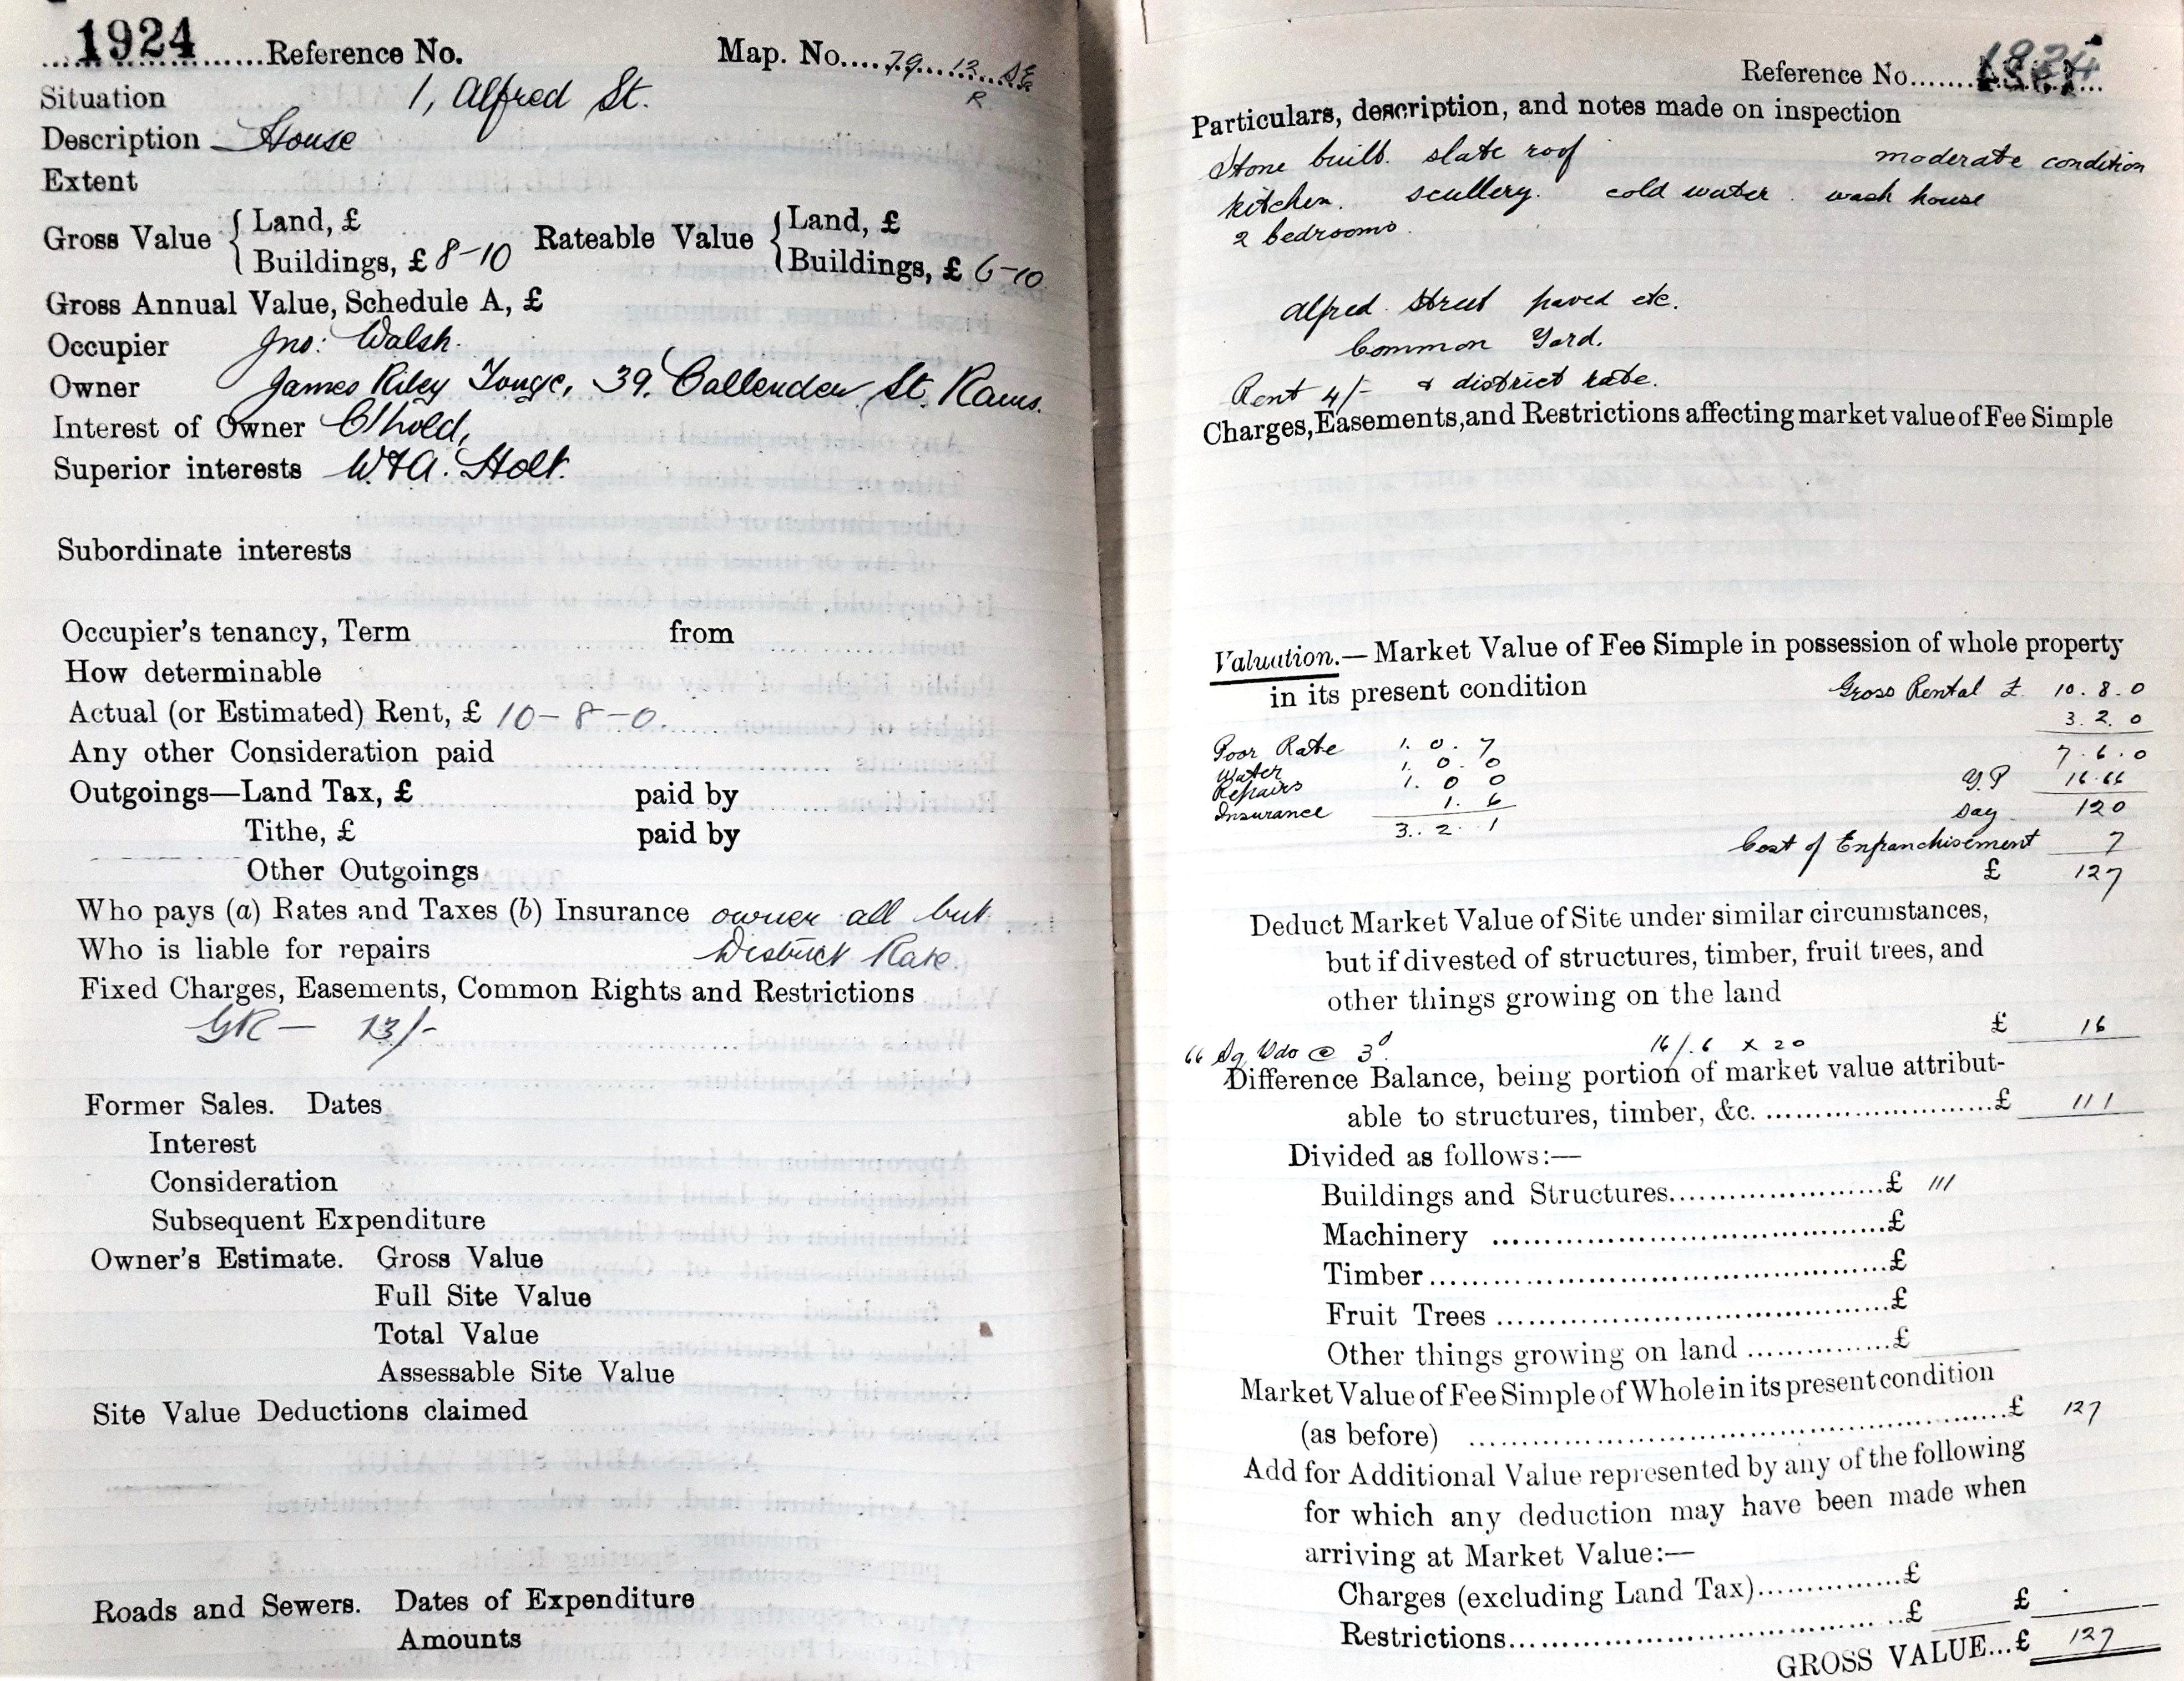 1924 Reference No. Map. No. 79 12 SE
R
Situation 1, Alfred St.
Description House
Extent
Gross Value { Land, £ Rateable Value { Land, £
Buildings, £ 8-10 Buildings, £ 6-10
Gross Annual Value, Schedule A, £
Occupier Jno: Walsh.
Owner James Riley Tonge, 39. Callender St. Rams.
Interest of Owner C/hold,
Superior interests W&A. Holt.
Subordinate interests
Occupier's tenancy, Term from
How determinable
Actual (or Estimated) Rent, £ 10-8-0.
Any other Consideration paid
Outgoings—Land Tax, £ paid by
Tithe, £ paid by
Other Outgoings
Who pays (a) Rates and Taxes (b) Insurance owner all but
Who is liable for repairs District Rate.
Fixed Charges, Easements, Common Rights and Restrictions
GR — 13/-
Former Sales. Dates
Interest
Consideration
Subsequent Expenditure
Owner's Estimate. Gross Value
Full Site Value
Total Value
Assessable Site Value
Site Value Deductions claimed
Roads and Sewers. Dates of Expenditure
Amounts
Reference No. 1924
Particulars, description, and notes made on inspection
Stone built. slate roof moderate condition
kitchen. scullery. cold water. wash house
2 bedrooms.
Alfred Street paved etc.
Common Yard.
Rent 4/- & district rate.
Charges, Easements, and Restrictions affecting market value of Fee Simple
Valuation.—Market Value of Fee Simple in possession of whole property
in its present condition Gross Rental £ 10.8.0
3.2.0
Poor Rate 1.0.7 7.6.0
Water 1.0.0 Y.P 16.66
Repairs 1.0.0 say 120
Insurance 1.6
3.2.1 Cost of Enfranchisement 7
£ 127
Deduct Market Value of Site under similar circumstances,
but if divested of structures, timber, fruit trees, and
other things growing on the land
£ 16
66 Sq. Yds @ 3d. 16/.6 x 20
Difference Balance, being portion of market value attribut-
able to structures, timber, &c. £ 111
Divided as follows:—
Buildings and Structures £ 111
Machinery £
Timber £
Fruit Trees £
Other things growing on land £
Market Value of Fee Simple of Whole in its present condition
(as before) £ 127
Add for Additional Value represented by any of the following
for which any deduction may have been made when
arriving at Market Value:—
Charges (excluding Land Tax) £
Restrictions £ £
GROSS VALUE...£ 127